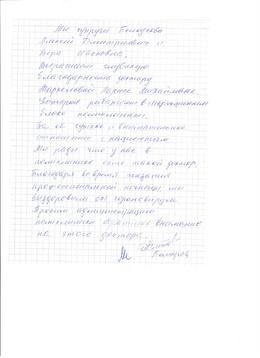 Мы супруги
Алексей Дмитриевич и
Вера Ивановна,
Выражаем глубокую
благодарность доктору
Ларисе Михайловне
Которая работает в
блоке поликлиники.
За её чуткое и внимательное
отношение к пациентам
Мы рады что у нас в
поликлинике есть такой доктор.
Благодаря во время оказания
профессиональной помощи мы
выздоровели от коронавируса
Просим администрацию
поликлиники обратить внимание
на этого доктора.